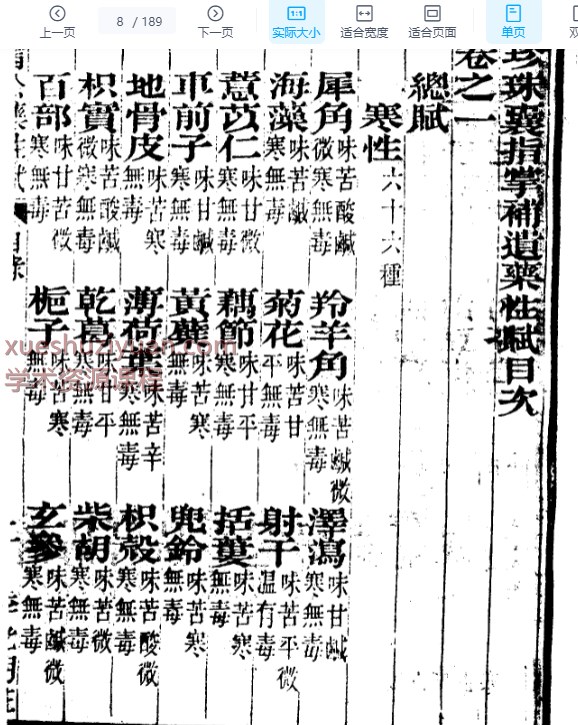 上一页
8 / 189
下一页
实际大小
适合宽度
适合页面
单页
双
珍珠囊指掌補遺藥性賦目次
卷之一
總賦
寒性 六十六種
犀角 味苦酸鹹微寒無毒 羚羊角 味苦鹹微寒無毒 澤瀉 味甘鹹寒無毒
海藻 味苦鹹寒無毒 菊花 味苦甘平無毒 射干 味苦平微温有毒
薏苡仁 味甘微寒無毒 藕節 味甘平寒無毒 括蔞 味苦寒無毒
車前子 味甘鹹寒無毒 黃蘗 味苦寒無毒 兜鈴 味苦寒無毒
地骨皮 味苦寒無毒 薄荷葉 味苦辛寒無毒 枳殼 味苦酸微寒無毒
枳實 味苦酸鹹微寒無毒 乾葛 味甘平寒無毒 柴胡 味苦微寒無毒
百部 味甘苦微寒無毒 梔子 味苦寒無毒 玄參 味苦鹹微寒無毒
xueshuziyuan.com
学术资源课程